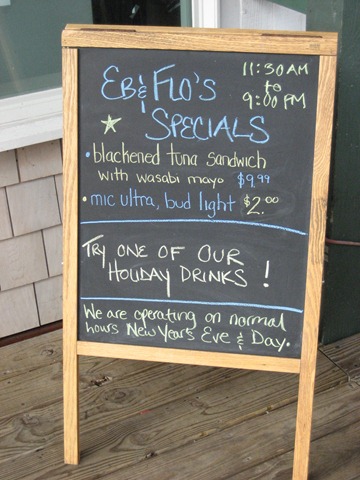 EB & FLO'S
11:30 AM
to
9:00 PM
SPECIALS
• blackened tuna sandwich
with wasabi mayo $9.99
• mic ultra, bud light $2.00
TRY ONE OF OUR
HOLIDAY DRINKS !
We are operating on normal
hours New Year's Eve & Day.